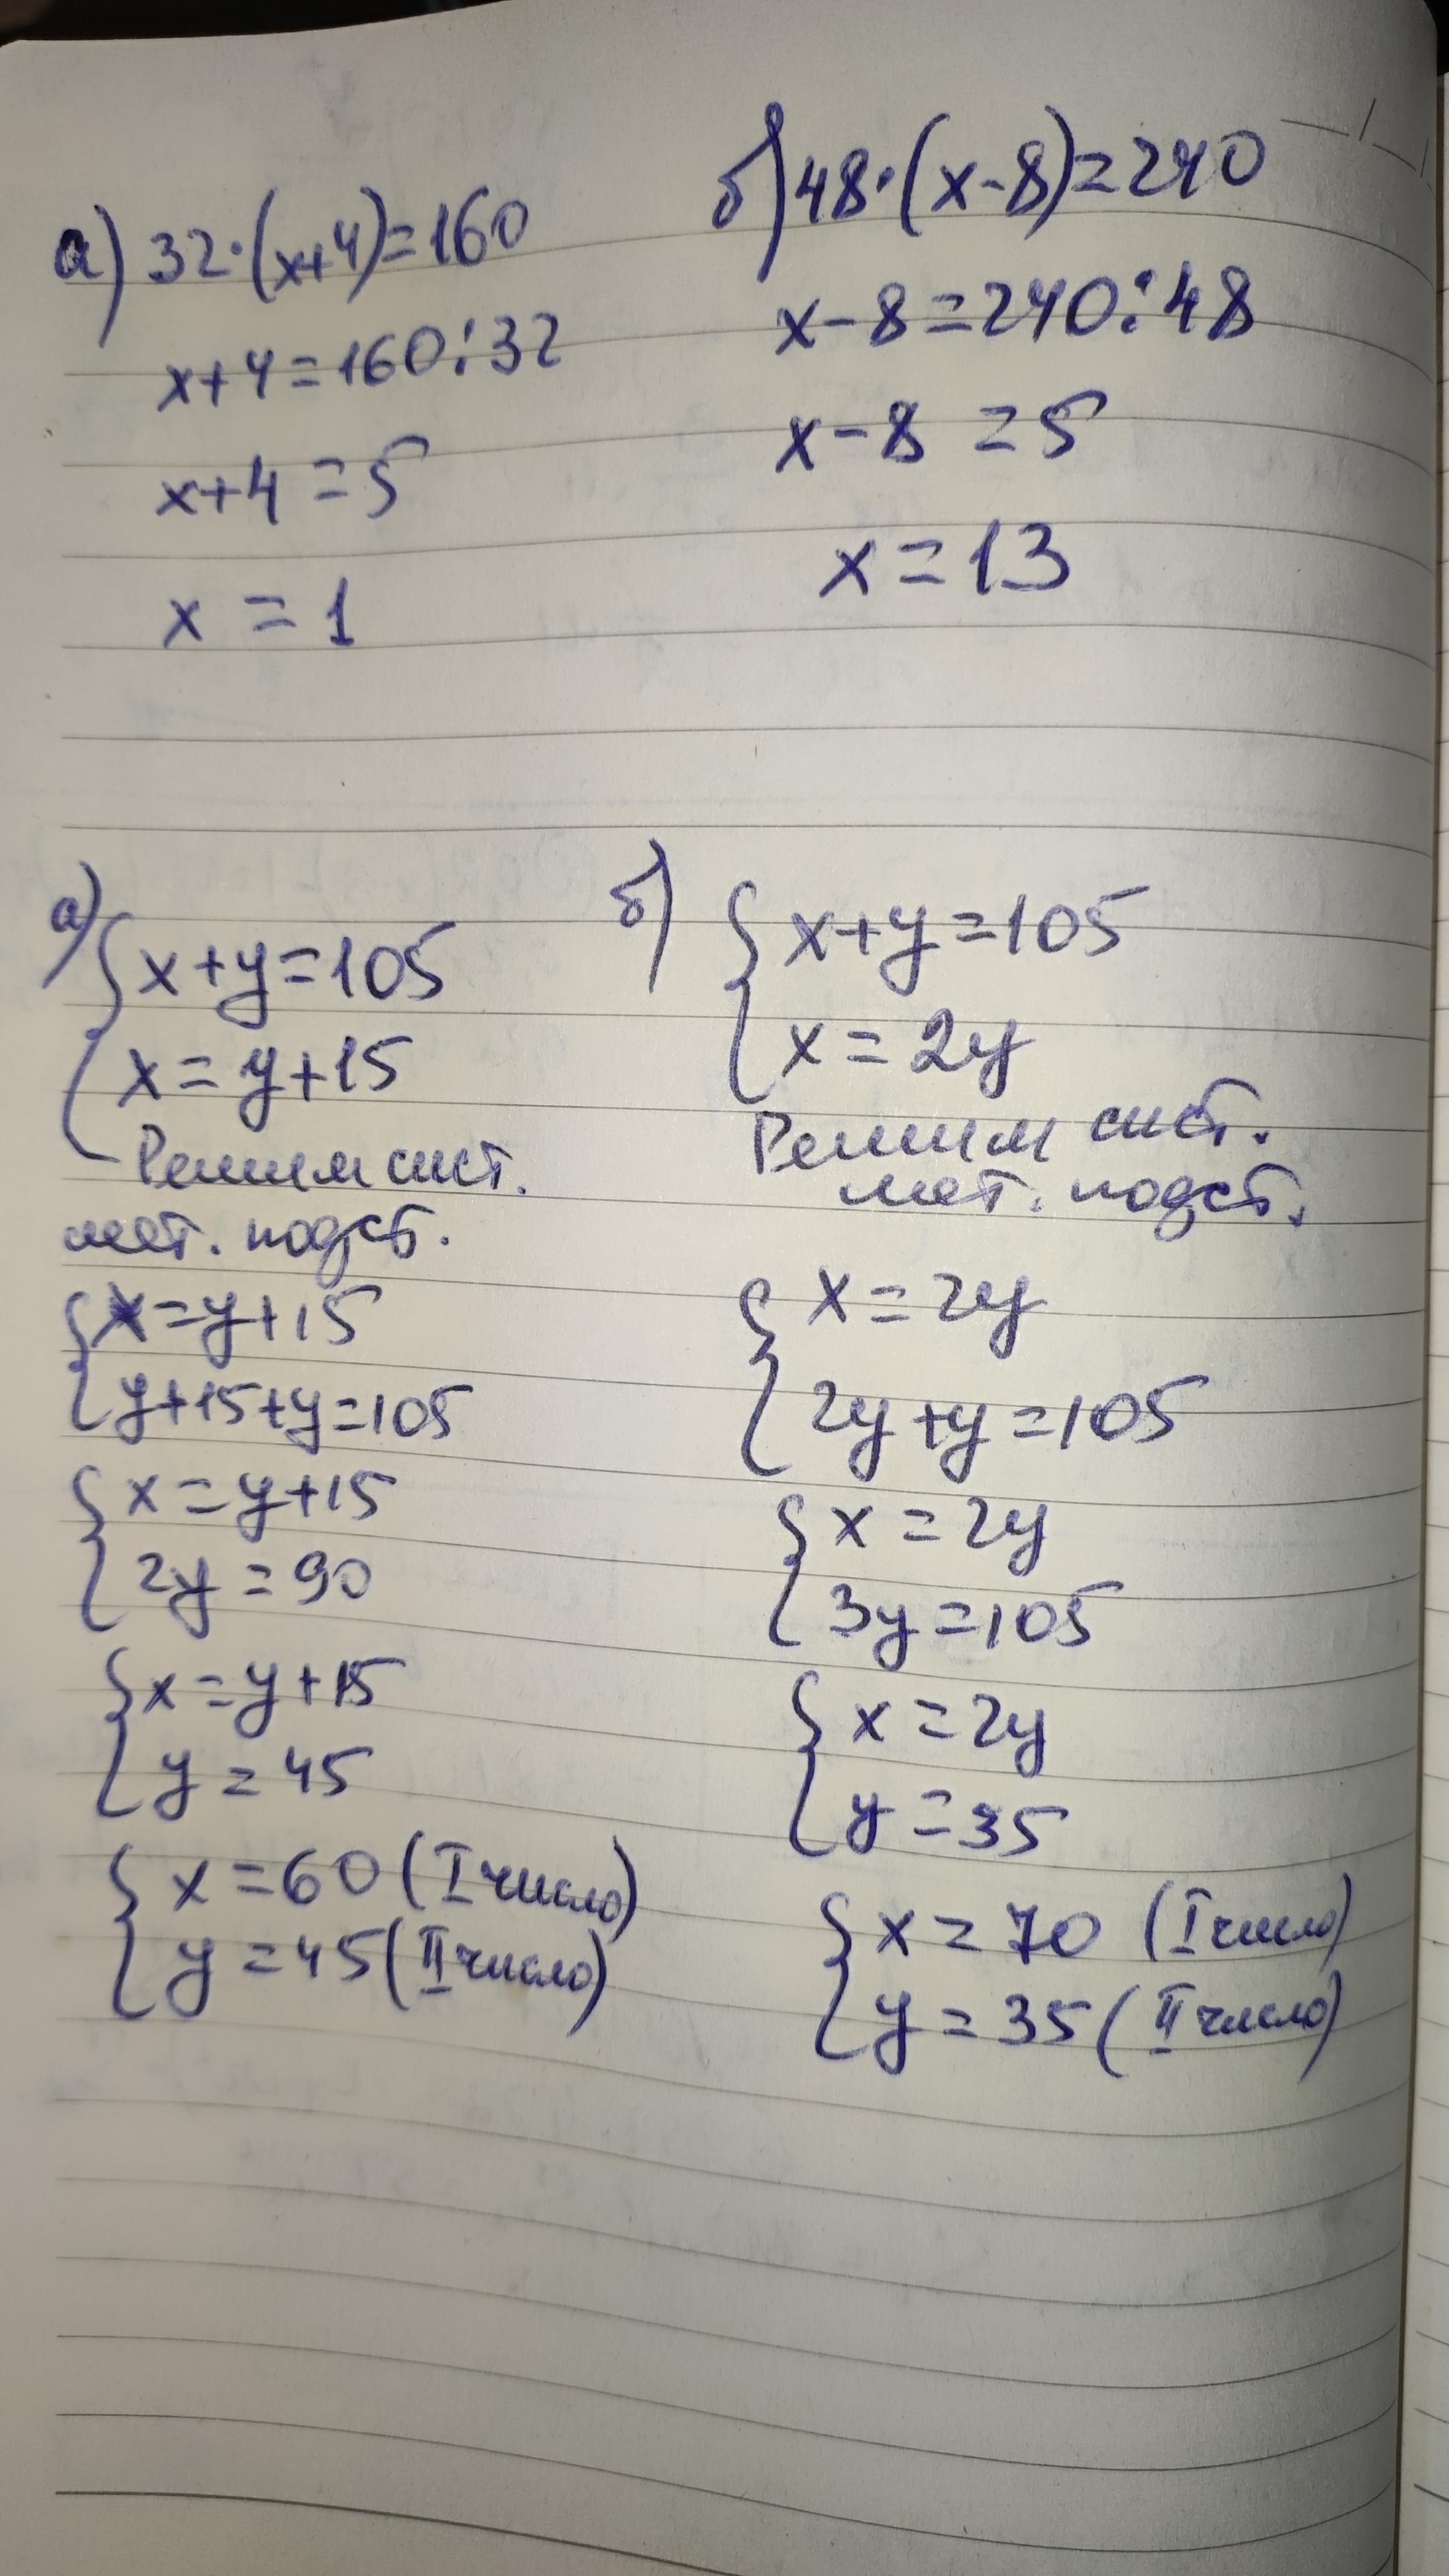 а) 32·(x+4)=160
x+4=160:32
x+4=5
x=1
б) 48·(x-8)=240
x-8=240:48
x-8=5
x=13
а) {x+y=105
x=y+15
Решим сист.
мет. подст.
{x=y+15
y+15+y=105
{x=y+15
2y=90
{x=y+15
y=45
{x=60 (I число)
y=45 (II число)
б) {x+y=105
x=2y
Решим сист.
мет. подст.
{x=2y
2y+y=105
{x=2y
3y=105
{x=2y
y=35
{x=70 (I число)
y=35 (II число)